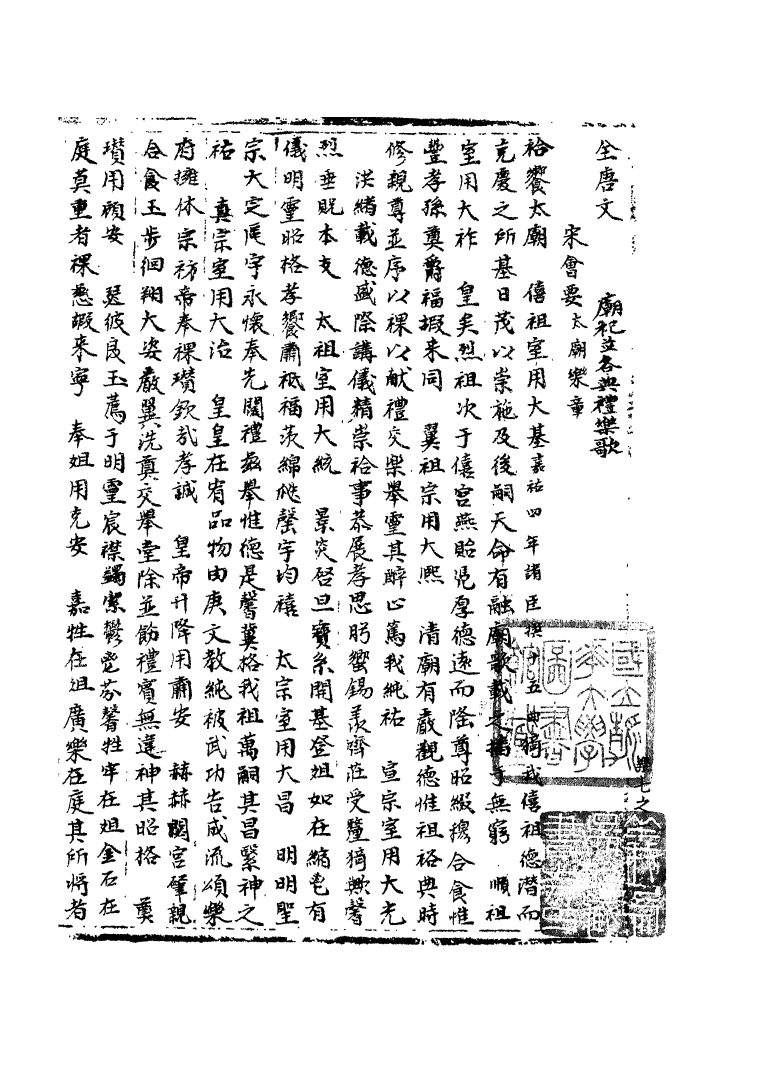 全唐文　廟祀並各典禮樂歌
宋會要 太廟樂章
祫饗太廟　僖祖室用大基 嘉祐四年諸臣撰十五曲 猗我僖祖德潛而
充慶之所基日茂以崇施及後嗣天命有融廟歌載之播于無窮　順祖
室用大祚　皇矣烈祖次于僖宮燕貽沇厚德遠而隆尊昭綴穆合食惟
豐孝孫奠爵福嘏来同　翼祖宗用大熙　清廟有嚴觀德惟祖祫典時
修親尊並序以祼以献禮交樂舉靈其醉止篤我純祐　宣宗室用大光
洪緒載德盛際講儀精崇祫事恭展孝思肸蠁錫羨齊莊受釐猗歟馨
烈垂貺本支　太祖室用大統　景炎啓旦寶系開基登俎如在縮皃有
儀明靈昭格孝饗肅祗福茨綿桃馨宇均禧　太宗室用大昌　明明聖
宗大定區宇永懷奉先闕禮茲舉惟德是馨冀格我祖萬嗣其昌繄神之
祐　真宗室用大治　皇皇在宥品物由庚文教純被武功告成流頌樂
府擁休宗祊帝奉祼瓚欽哉孝誠　皇帝升降用肅安　赫赫閟宮肇親
合食玉步徊翔大姿嚴翼洗奠交舉堂除並飭禮賓無違神其昭格　奠
瓚用顧安　瑟彼良玉薦于明靈宸襟蠲潔鬱鬯芬馨牲牢在俎金石在
庭真重者祼慿嘏来寧　奉俎用充安　嘉牲在俎廣樂在庭其所將者
樂七之
國立北平圖書館